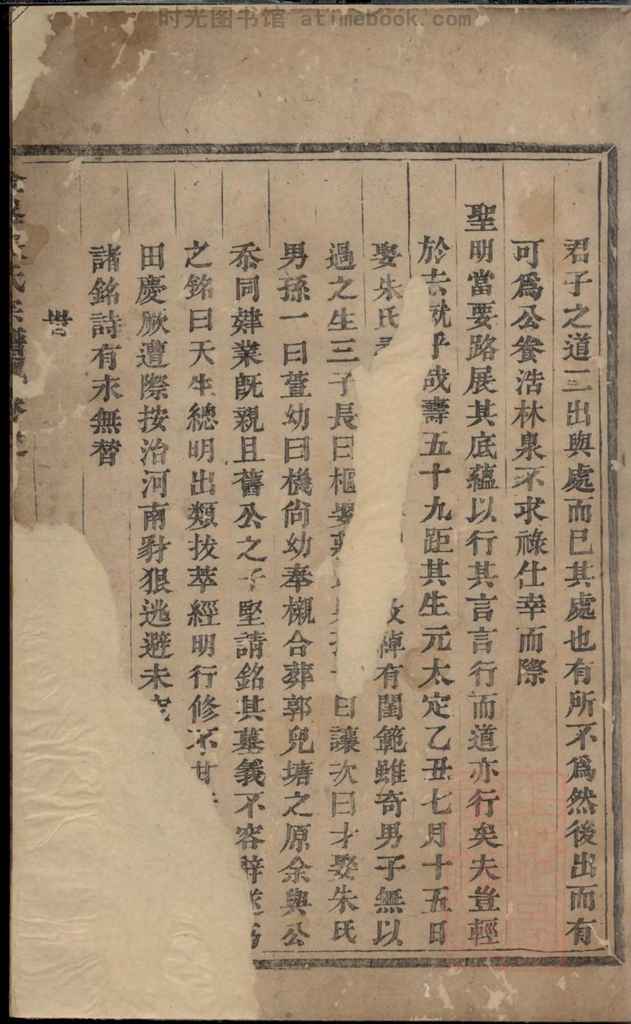 时光图书馆 atimebook.com
君子之道二出與處而已其處也有所不爲然後出而有
可爲公養浩林泉不求祿仕幸而際
聖明當要路展其底蘊以行其言言行而道亦行矣夫豈輕
於去就乎哉壽五十九距其生元太定乙丑七月十五日
娶朱氏 有閨範雖奇男子無以
過之生三子長曰樞娶 曰讓次曰才娶朱氏
男孫一曰萱幼曰機尙幼奉櫬合葬郭兒塘之原余與公
忝同肄業旣親且舊公之子堅請銘其墓義不容辭遂爲
之銘曰天生總明出類拔萃經明行修不甘
田慶厥遭際按治河南豺狠逃避未
諸銘詩有永無替
氏宗譜
卅